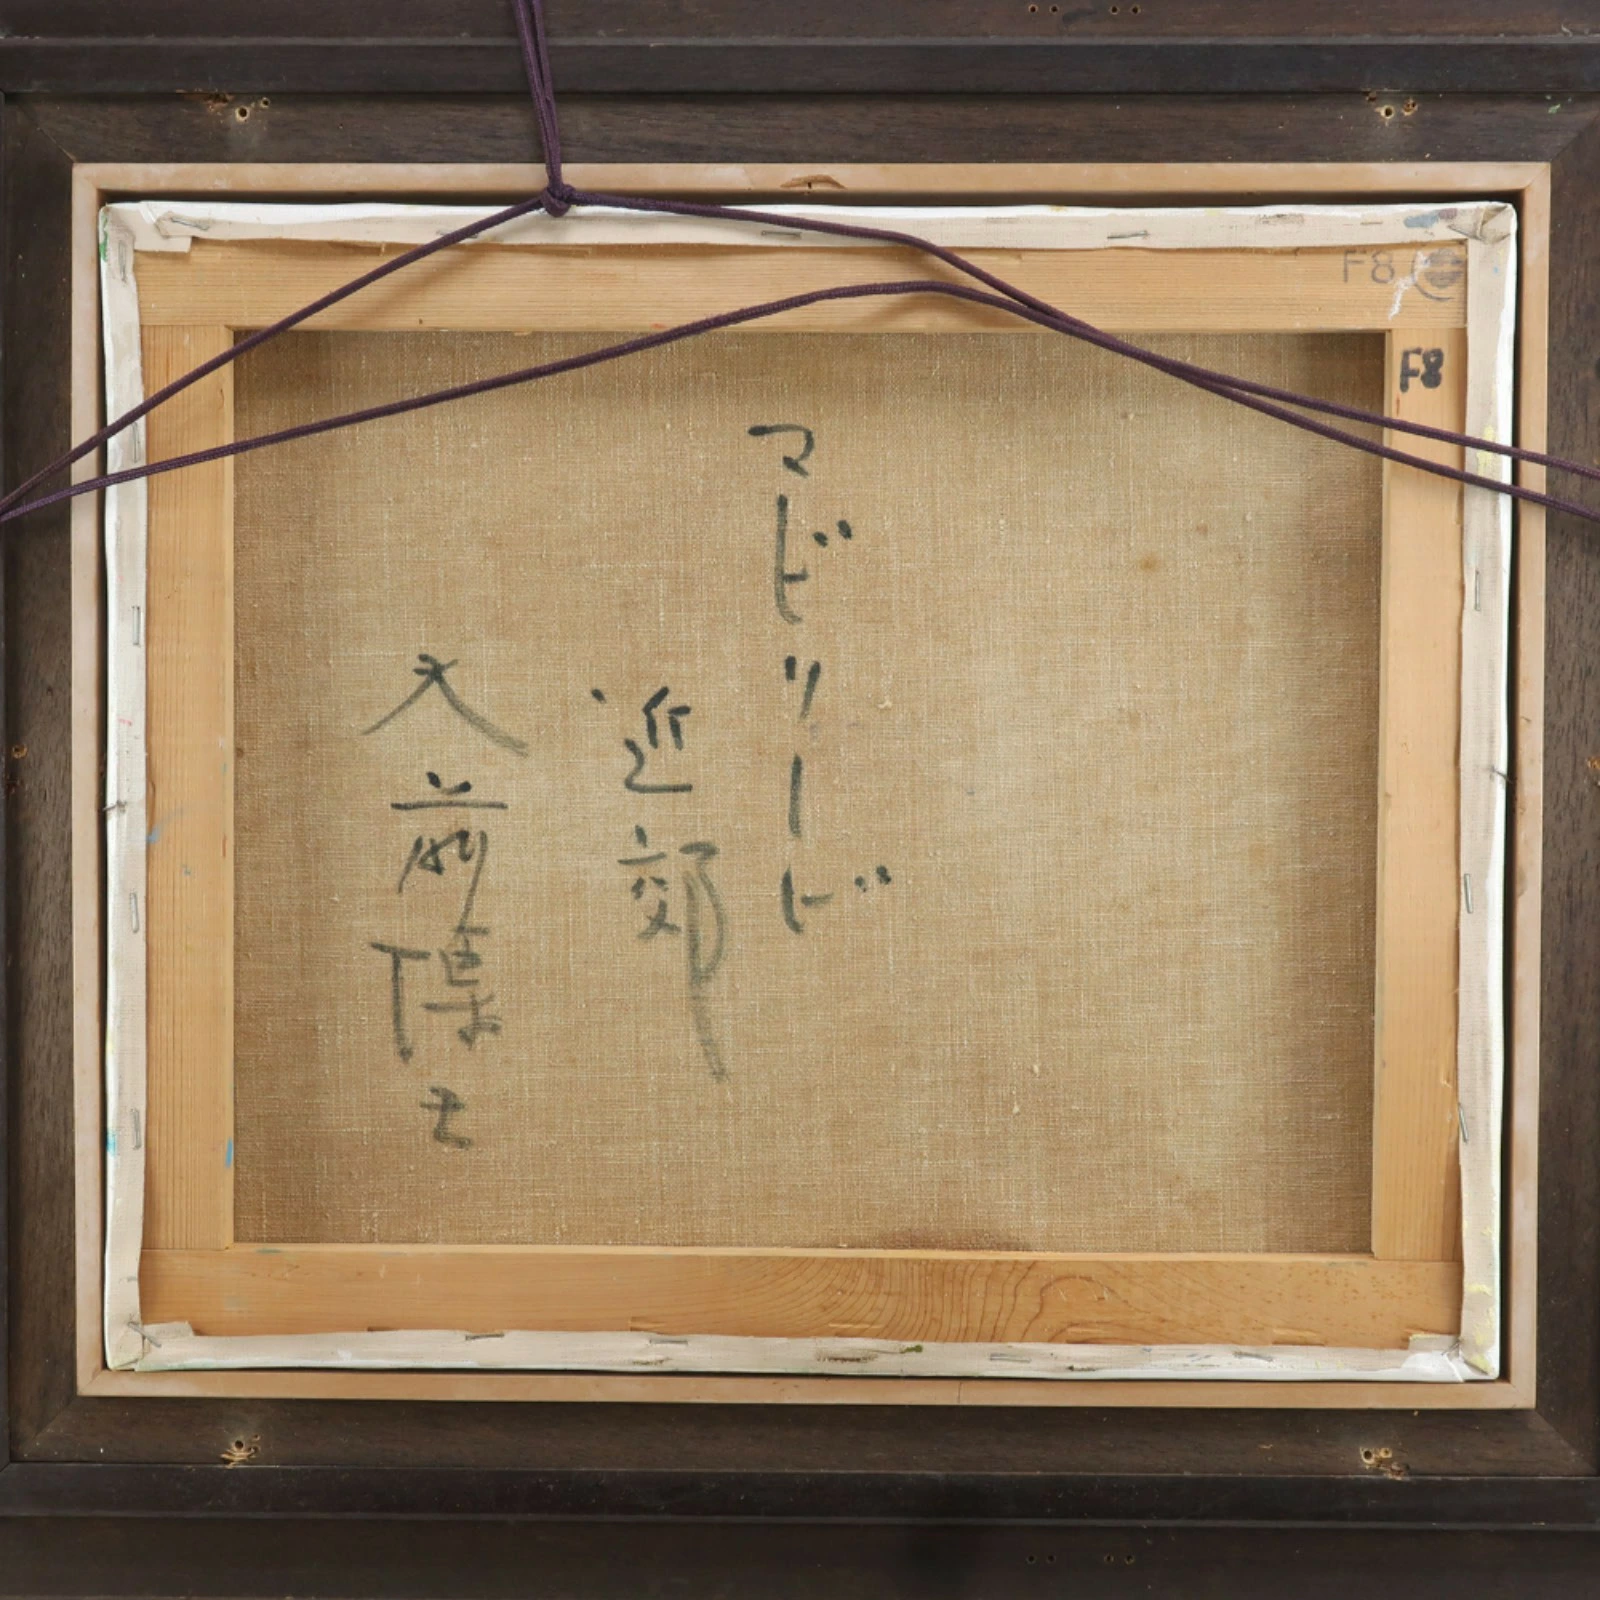 F8
F8
マドリード
近郊
大前博士